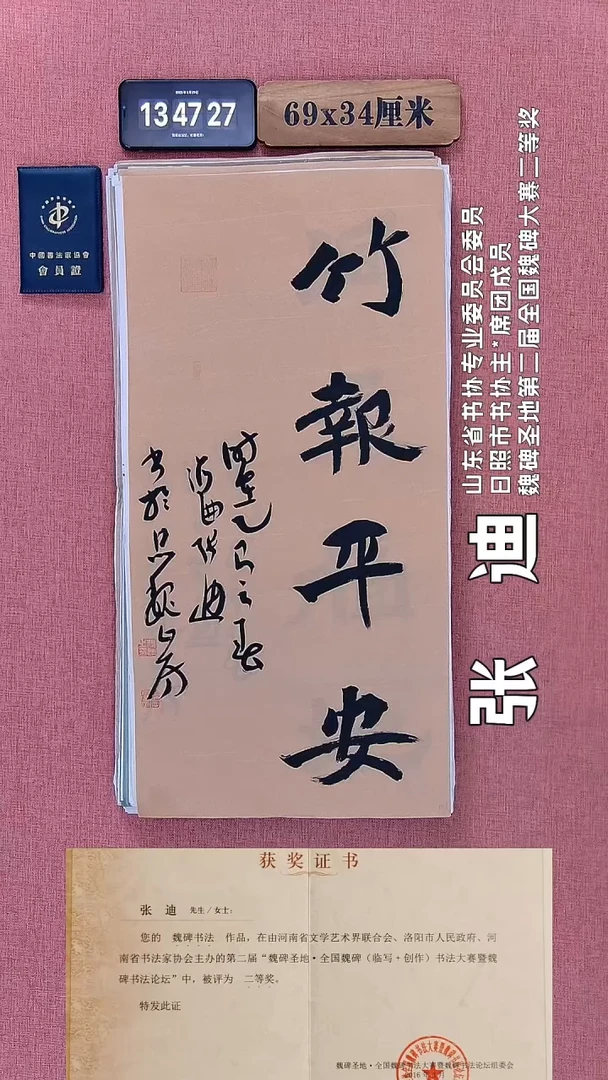 13 47 27
69x34厘米
中國書法家協會
會員證
竹報平安
山东省书协专业委员会委员
日照市书协主*席团成员
魏碑圣地第二届全国魏碑大赛二等奖
张迪
获奖证书
张 迪 先生/女士:
您的 魏碑书法 作品,在由河南省文学艺术界联合会、洛阳市人民政府、河
南省书法家协会主办的第二届“魏碑圣地·全国魏碑(临写+创作)书法大赛暨魏
碑书法论坛”中,被评为 二等奖。
特发此证
魏碑圣地·全国魏碑书法大赛暨魏碑书法论坛组委会